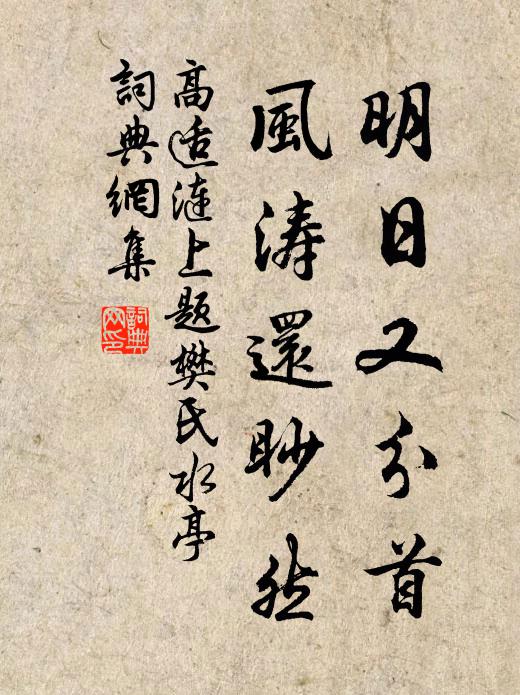 明日又分首
風濤還眇然
高适涟上题樊氏水亭
詞典網集
詞典
网印